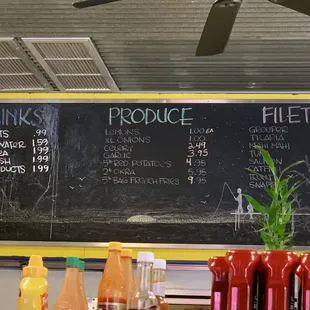 INKS
TS .99
WATER 1.59
RA 1.99
SH 1.99
PRODUCTS 1.99
PRODUCE
LEMONS 1.00 EA
XL ONIONS 1.00
CELERY 2.49
GARLIC 3.95
5# RED POTATOES 4.95
2# OKRA 5.95
5# BAG FRENCH FRIES 9.95
FILET
GROUPER
TILAPIA
MAHI MAHI
SALMON
CATFISH
TROUT
SNAPPER